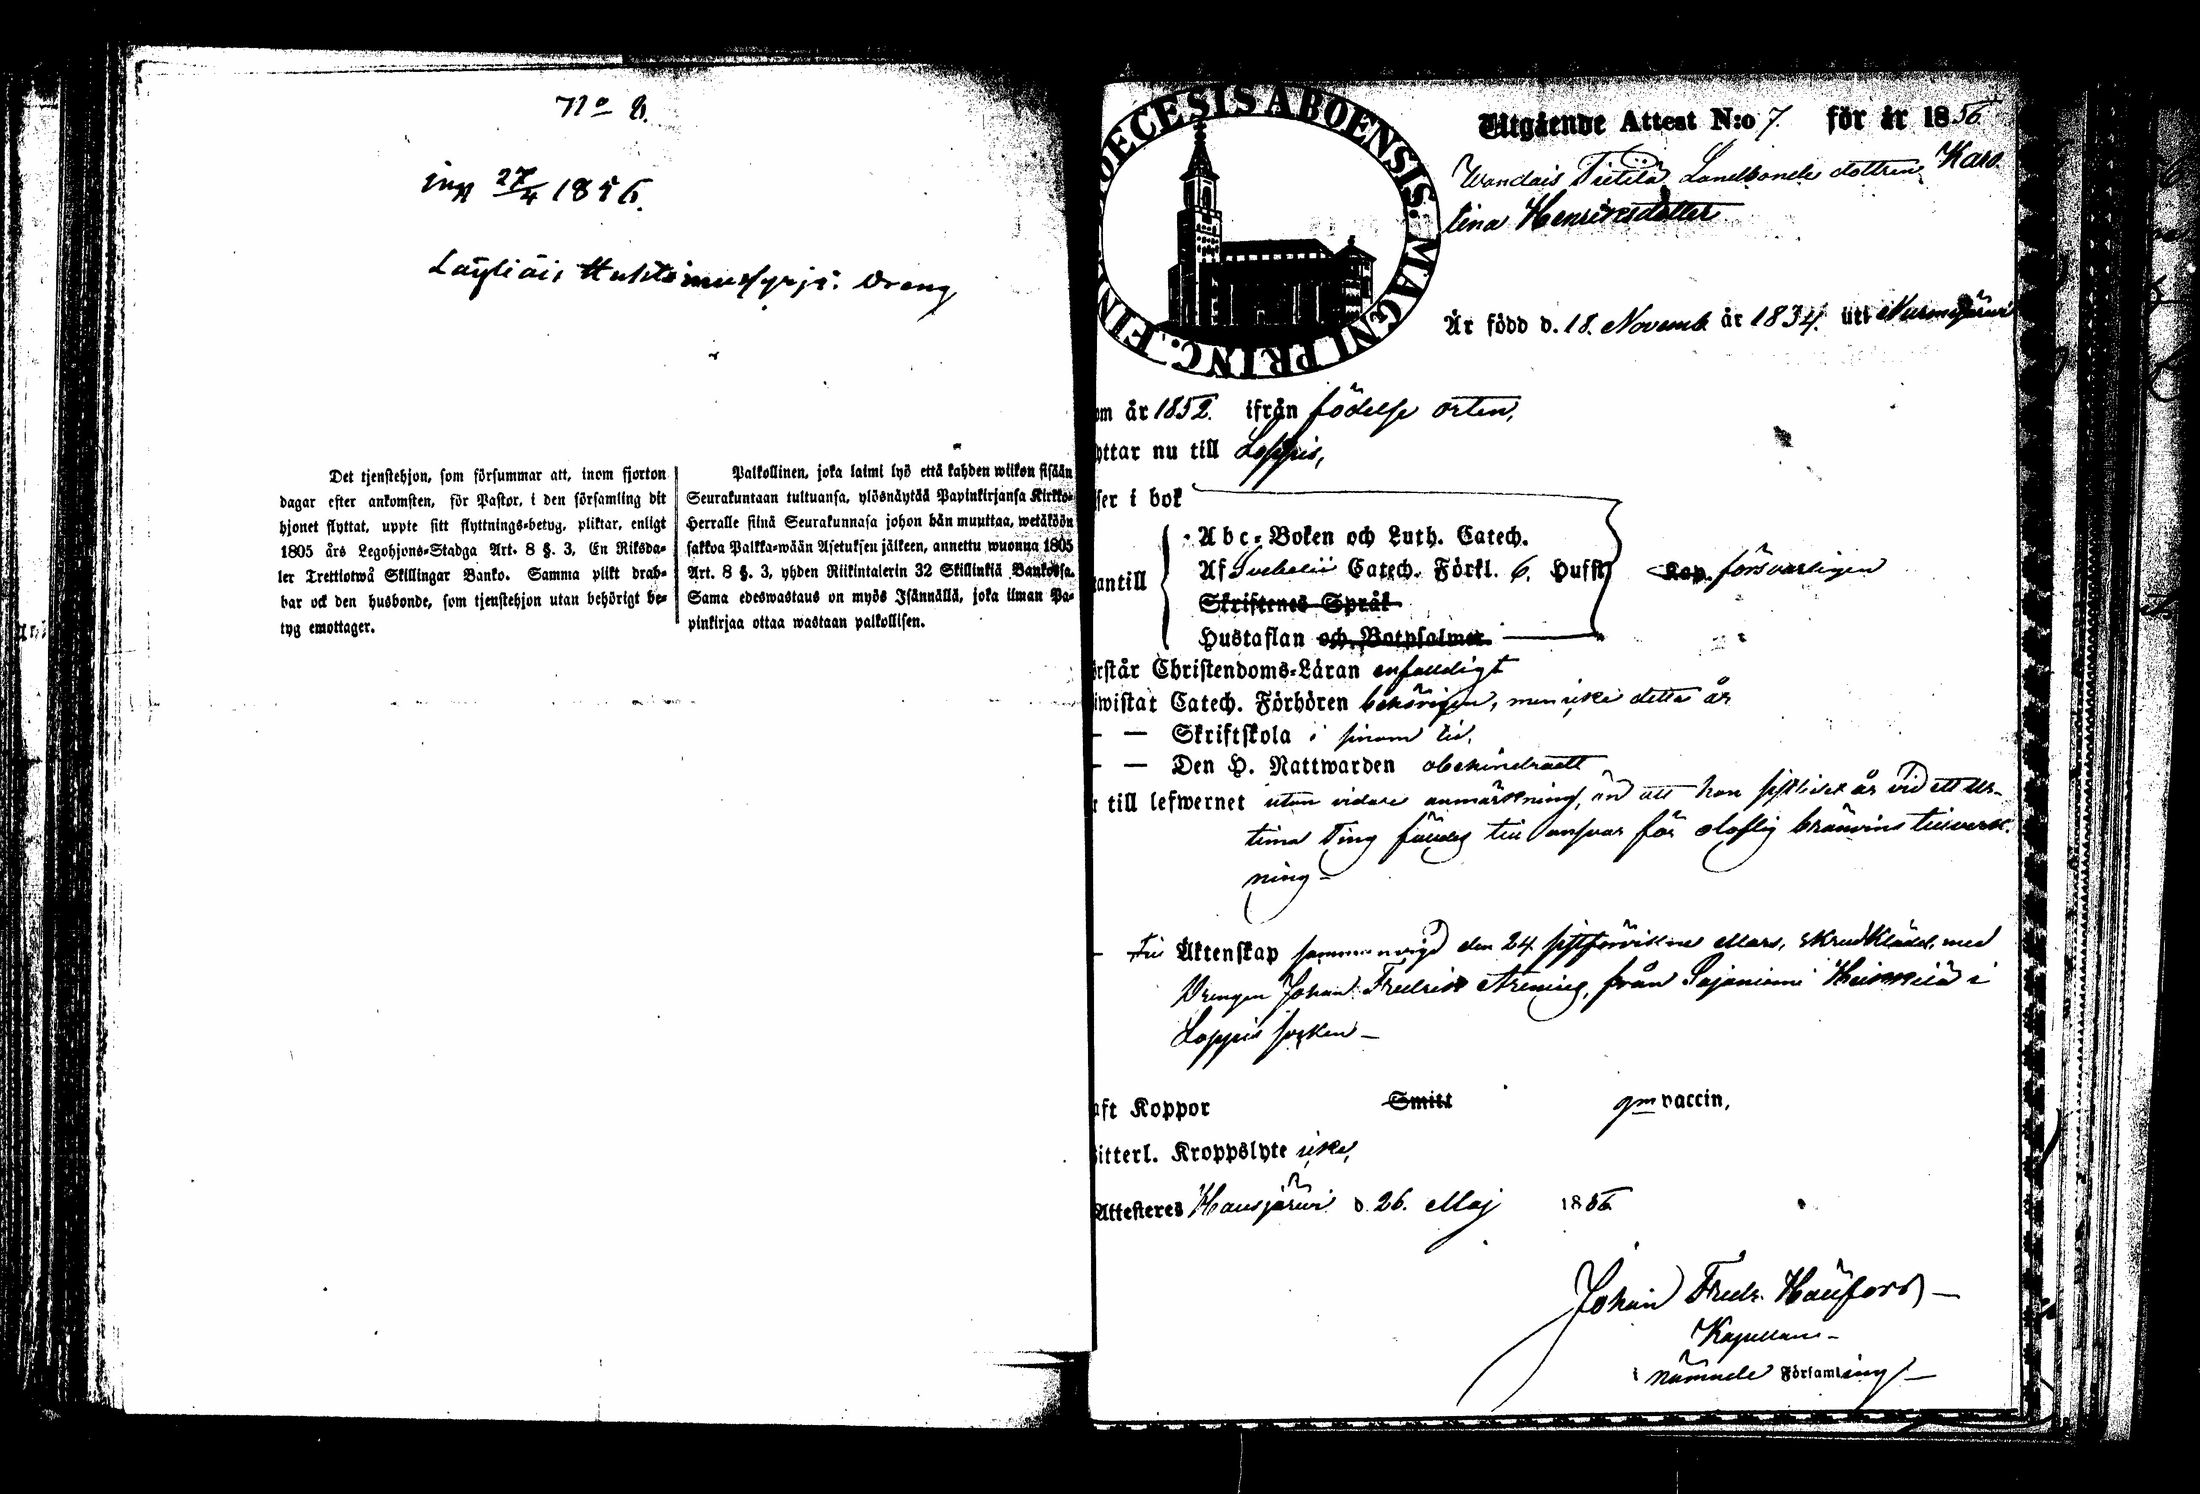 No 8.
ing 27/4 1856.
Läyliäis Dreng
Det tjenstehjon, som försummar att, inom fjorton
dagar efter ankomsten, för Pastor, i den församling dit
hjonet flyttat, uppte sitt flyttnings-betyg, pliktar, enligt
1805 års Legohjons-Stadga Art. 8 §. 3, En Riksda-
ler Trettiotwå Skillingar Banko. Samma plikt drab-
bar ock den husbonde, som tjenstehjon utan behörigt be-
tyg emottager.
Palkollinen, joka laimi lyö että kahden wiikon sisään
Seurakuntaan tultuansa, ylösnäytää Papinkirjansa Kirkko-
Herralle siinä Seurakunnasa johon hän muuttaa, wetäköön
sakkoa Palkka-wään Asetuksen jälkeen, annettu wuonna 1805
Art. 8 §. 3, yhden Riikintalerin 32 Skillinkiä Bankosa.
Sama edeswastaus on myös Isännällä, joka ilman Pa-
pinkirjaa ottaa wastaan palkollisen.
DIOECESIS ABOENSIS. MAGNI PRINC. FIN
Utgående Attest N:o 7. för år 1856
Wandais Tietilä Landbonde dottren Karo-
lina Henriksdotter
Är född d. 18. Novemb. år 1834. uti Nurmijärvi
om år 1852. ifrån födelse orten,
yttar nu till Loppis,
ser i bok
antill
Abc-Boken och Luth. Catech.
Af Svebelii Catech. Förkl. 6. Hufst försvarligen
Skriftenes Språk
Hustaflan och Botpsalmer
rstår Christendoms-Läran enfaldigt
iwistat Catech. Förhören behörigen, men icke detta år
— — Skriftskola i sinom tid.
— — Den H. Nattwarden obehindradt
r till lefwernet utan vidare anmärkning, än att hon sistlidet år vid ett Ur-
tima Ting fäldes till ansvar för olaflig bränvins tillverk-
ning —
— Till Äktenskap sammanvigd den 24 sistförvikne Mars, skrudklädd, med
Drengen Johan Fredrik från Sajaniemi Heikkilä i
Loppis socken —
aft Koppor Smitt gm vaccin,
itterl. Kroppslyte icke,
Attesteres Hausjärvi d. 26. Maj 1856
Johan Fredr.
Kapellan —
i nämnde Församling —